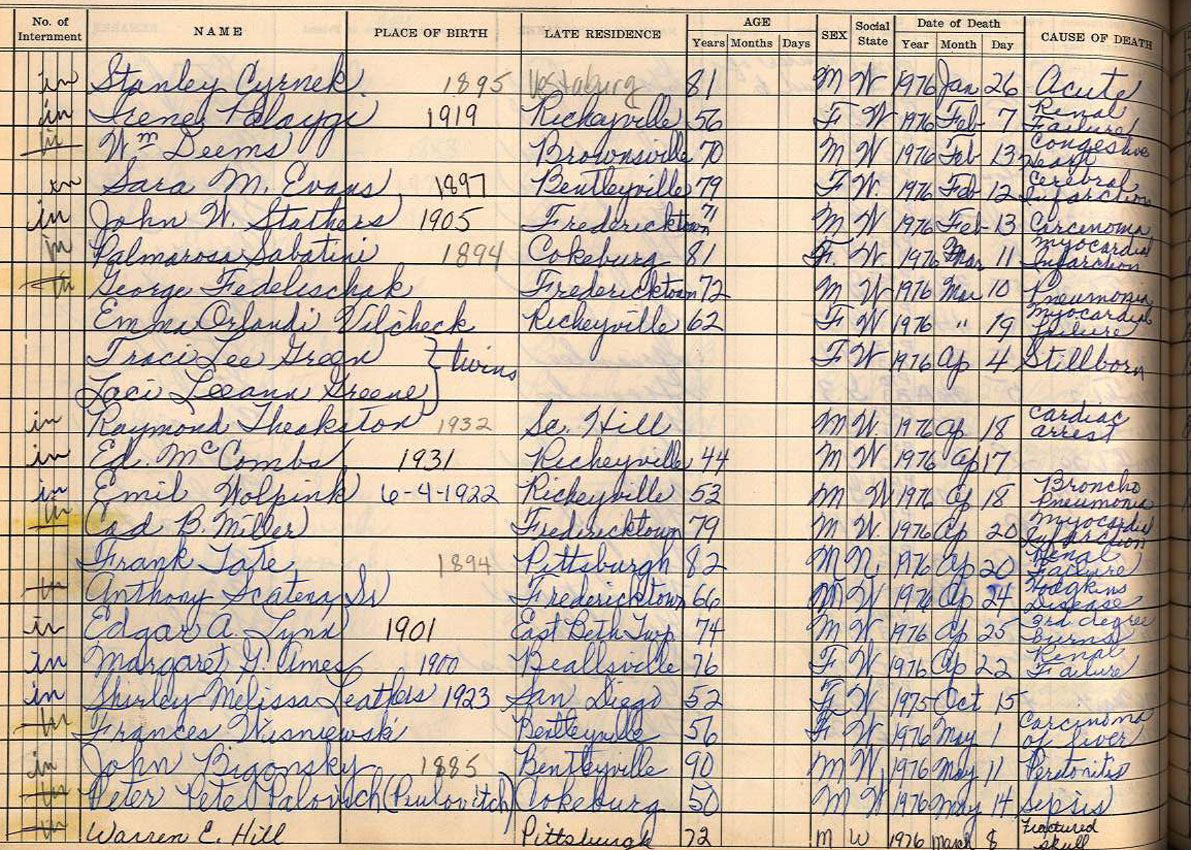 No. of Internment NAME PLACE OF BIRTH LATE RESIDENCE AGE Years Months Days SEX Social State Date of Death Year Month Day CAUSE OF DEATH
in Stanley Cyrnek 1895 Vestaburg 81 M W 1976 Jan 26 Acute
in Irene Palaygi 1919 Richeyville 56 F W 1976 Feb 7 Renal Failure
Wm Deems Brownsville 70 M W 1976 Feb 13 Congestive Heart
in Sara M. Evans 1897 Bentleyville 79 F W. 1976 Feb 12 Cerebral Infarction
in John W. Stathers 1905 Fredericktown 71 M W 1976 Feb 13 Carcinoma
in Palmarosa Sabatini 1894 Cokeburg 81 F W 1976 Mar 11 Myocardial Infarction
in George Fedelischak Fredericktown 72 M W 1976 Mar 10 Pneumonia
Emma Orlandi Vilcheck Richeyville 62 F W 1976 " 19 Myocardial Failure
Traci Lee Green } twins F W 1976 Ap 4 Stillborn
Laci Leeann Greene
in Raymond Theakston 1932 Sc. Hill M W 1976 Ap 18 Cardiac arrest
in Ed. McCombs 1931 Richeyville 44 M W 1976 Ap 17
in Emil Wolpink 6-4-1922 Richeyville 53 M W 1976 Ap 18 Broncho Pneumonia
in B. Miller Fredericktown 79 M W. 1976 Ap 20 Myocardial Infarction
Frank Tate 1894 Pittsburgh 82 M N. 1976 Ap 20 Renal Failure
in Anthony Scatena Sr Fredericktown 66 M W 1976 Ap 24 Hodgkins Disease
in Edgar A. Lynn 1901 East Beth Twp 74 M W 1976 Ap 25 3rd degree burns
in Margaret G. Ames 1900 Beallsville 76 F W 1976 Ap 22 Renal Failure
in Shirley Melissa Leathers 1923 San Diego 52 F W 1975 Oct 15
in Frances Wisniewski Bentleyville 56 F W 1976 May 1 Carcinoma of liver
in John Bigonsky 1885 Bentleyville 90 M W 1976 May 11 Peritonitis
in Peter Pete Palovich (Paulovitch) Cokeburg 50 M W 1976 May 14 Sepsis
in Warren E. Hill Pittsburgh 72 M W 1976 March 8 Fractured skull